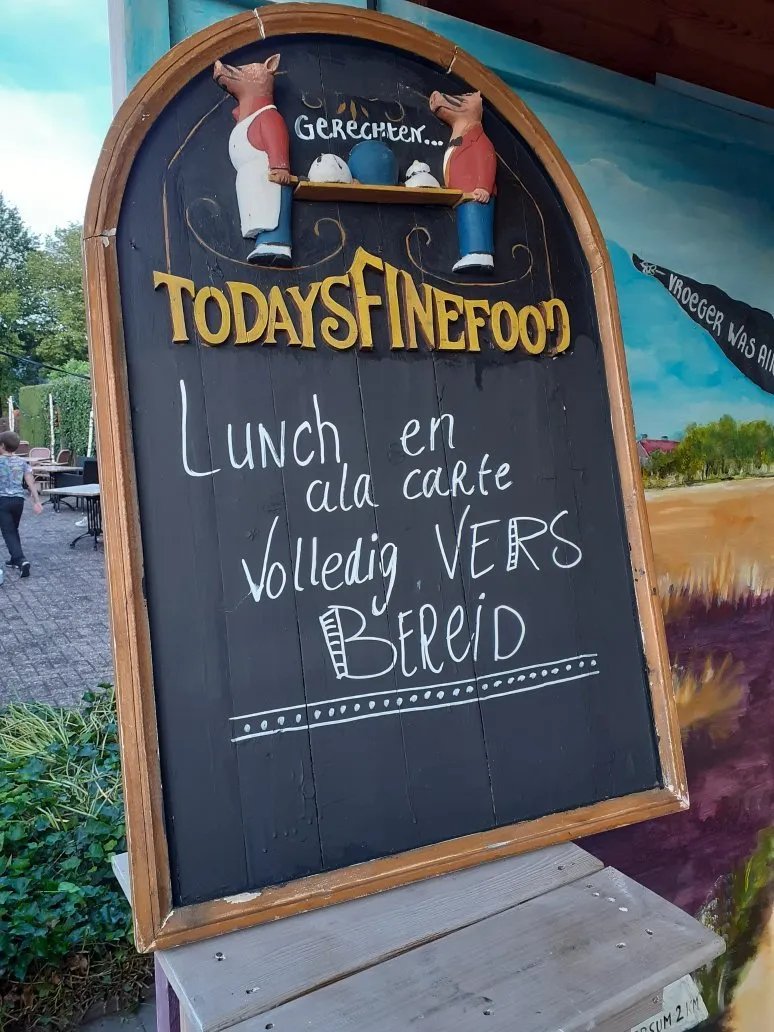 GERECHTEN...
TODAYSFINEFOOD
LUNCH en
ala carte
Volledig VERS
BEREID
VROEGER WAS
2 KM